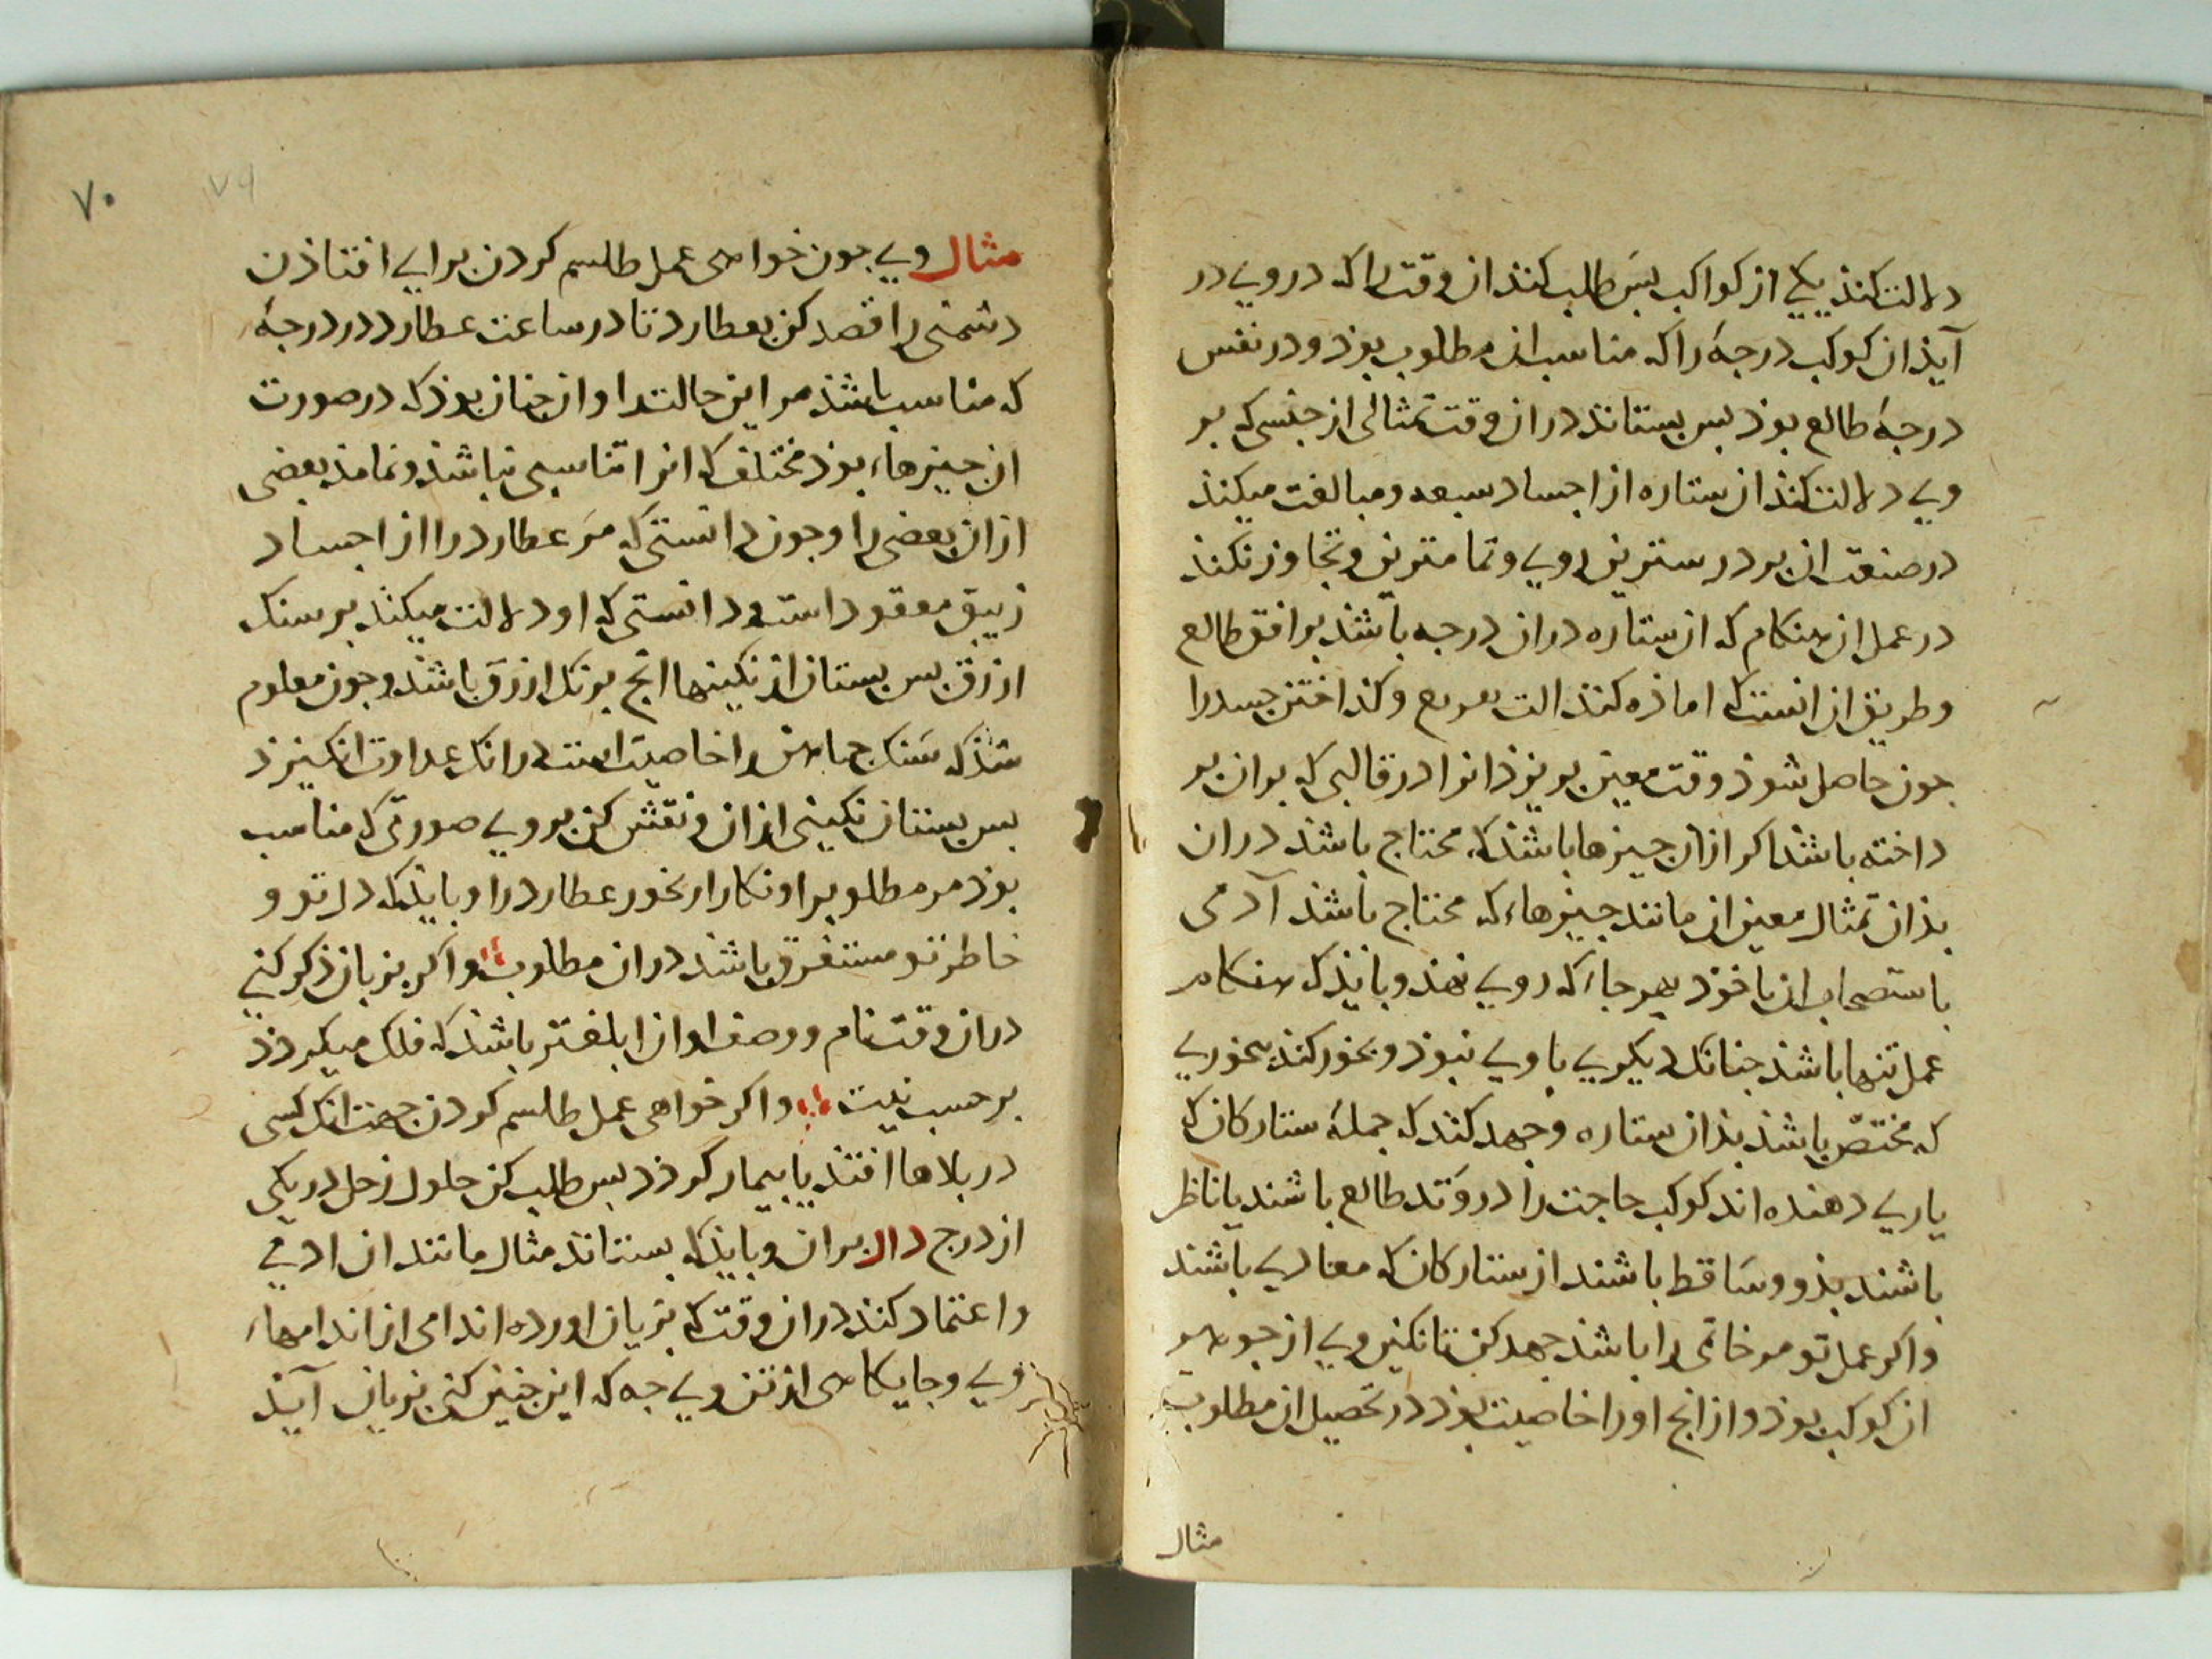 دلالت کنذ یکی از کواکب بسَ طلب کنذ ان وقت را که در وی در
آیذ ان کوکب درجهٔ را که مناسب ان مطلوب بوذ و در نفس
درجهٔ طالع بوذ بس بستانذ در ان وقت تمثالی از جنسی که بر
وی دلالت کنذ ان ستاره از اجساد سبعه و مبالغت میکنذ
در صنعت ان بر درستترین روی و تمامترین و تجاوز نکنذ
در عمل ان هنکام که ان ستاره در ان درجه باشذ بر افق طالع
و طریق ان انست که اماذه کنذ الت و کذاختن جسد را
جون حاصل شوذ وقت معین بریزذ انرا در قالبی که بران بر
داخته باشذ اکر ازان جیزها باشذ که محتاج باشذ دران
بذان تمثال معین از مانند جیزهاء که محتاج باشذ آدمی
باستصحاب ان با خوذ بهر جاء که روی نهذ و بایذ که هنکام
عمل تنها باشذ جنانک دیکری با وی نبوذ و بخور کنذ بخوری
که مختصّ باشذ بذان ستاره و جهد کنذ که جملهٔ ستارکان که
یاری دهنده اند کوکب حاجت را در وَتد طالع باشند یا ناظر
باشند بذو و سَاقط باشند از ستارکان که معادی باشند
و اکر عمل تو مر خاتمی را باشذ جهد کن تا نکین وی از جوهر
ان کوکب بوذ و از انج او را خاصیت بوذ در تحصیل ان مطلوب
مثال
۷۰
۷۹
مثال وی جون خواهی عمل طلسم کردن برای افتاذن
دشمنی را قصد کن بعطارد تا در ساعت عطارد در درجهٔ
که مناسب باشذ مر این حالت را و ان جنان بوذ که در صورت
ان جیزهاء بوذ مختلف که انرا تناسبی نباشذ و نماند بعضی
ازان بعضی را و جون دانستی که مَر عطارد را از اجساد
زیبق معقود است و دانستی که او دلالت میکند بر سنک
ازرق بس بستان از نکینها انج برنک ازرَق باشذ و جون معلوم
شذ که سَنک جماهن را خاصیت است درانک عداوت انکیزذ
بس بستان نکینی ازان و نقش کن بر وی صورتی که مناسب
بوذ مر مطلوب را و نکار دار بخور عطارد را و بایذ که دل تو و
خاطر تو مستغرق باشذ دران مطلوب و اکر بزبان ذکر کنی
دران وقت نام و وصف او ان ابلغتر باشذ که فلک میکردذ
بر حسب نیت و اکر خواهی عمل طلسم کردن جهت انک کسی
در بلاها افتذ یا بیمار کردذ بس طلب کن حلول زحل در یکی
از درج دال بران و بایذ که بستانذ مثال مانند ان ادمی
و اعتماد کنذ دران وقت که بزیان اورده اندامی از اندامهاء
وی و جایکاهی از تن وی جه که این جنین کنی بزیان آیذ